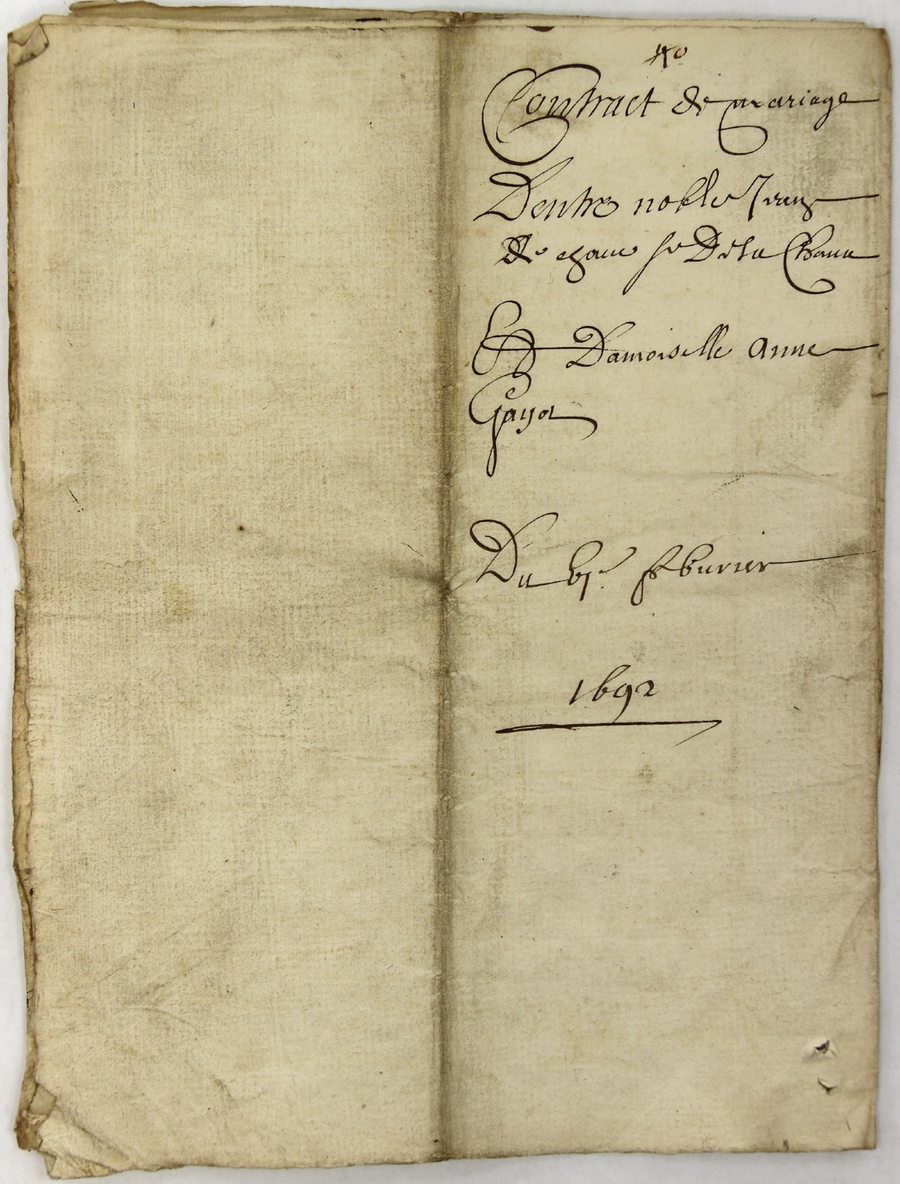 Contract de mariage
Dentre noble Jean
de sr Dela Chaux
Et Damoiselle anne
Gayot
Du vje febvrier
1692